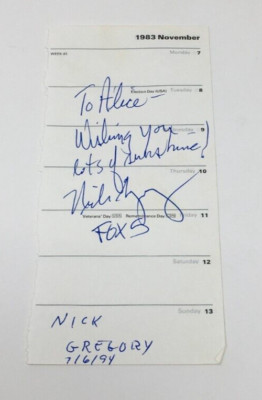 1983 November
WEEK OF
Monday 7
Tuesday 8
Election Day (USA)
To Alice —
Wishing you
Wednesday 9
lots of sunshine!
Thursday 10
Nick Gregory
Veterans' Day (USA) Remembrance Day (CDN) Friday 11
FOX 5
Saturday 12
Sunday 13
NICK
GREGORY
7/6/94